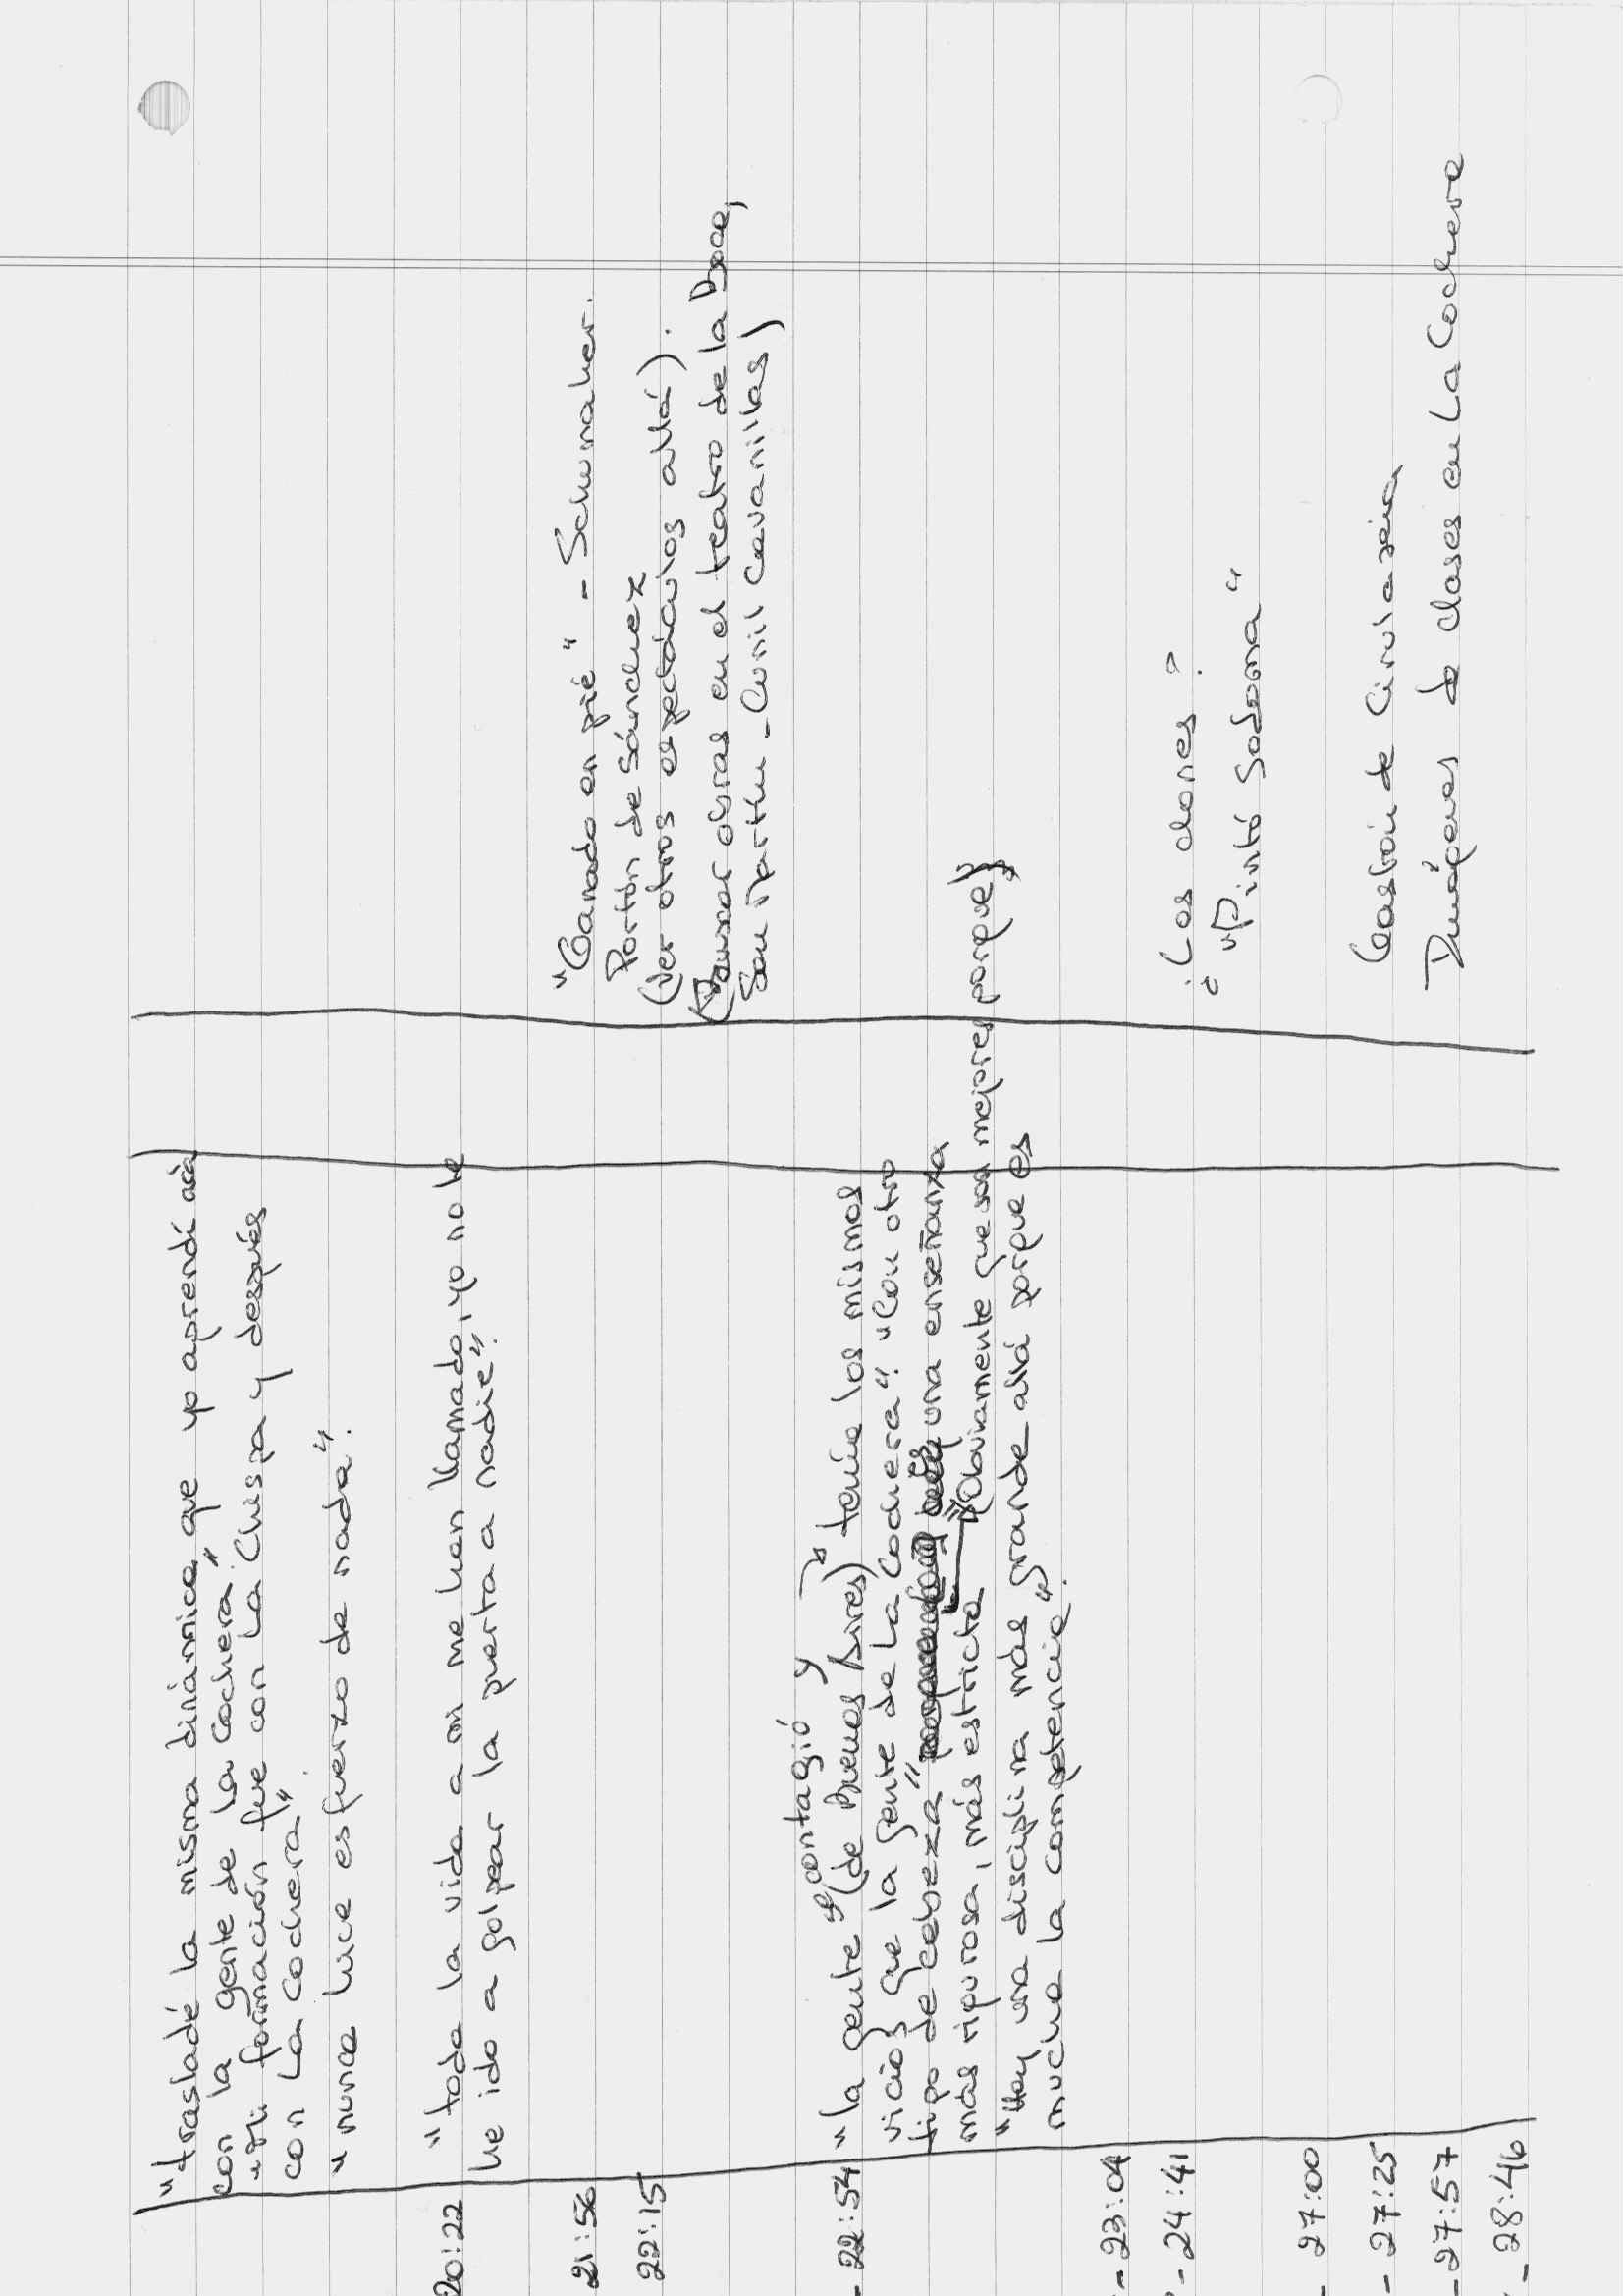 "trasladé la misma dinámica que yo aprendí acá
con la gente de La Cochera".
"mi formación fue con La Chispa y después
con La Cochera".
"nunca luce esfuerzo de nada".
20:22 "toda la vida a mi me han llamado, yo no le
he ido a golpear la puerta a nadie".
21:56 "Ganado en pié" - Schumaher.
Portón de Sánchez
22:15 (ver otros espectáculos allá).
(Buscar obras en el teatro de la Boca,
San Martín - Cunil Cavanillas)
se contagió y
- 22:54 "la gente (de Buenos Aires) tenía los mismos
vicios que la gente de La Cochera". "Con otro
tipo de cabeza" es una enseñanza
más rigurosa, más estricta "Obviamente que son mejores porque
"Hay una disciplina más grande allá porque es
mucha la competencia".
- 23:04
- 24:41 ¿Los clones?
"Pintó Sodoma"
- 27:00
- 27:25 Gastión de Cirulaxia
- 27:57 Imágenes de clases en La Cochera
- 28:46